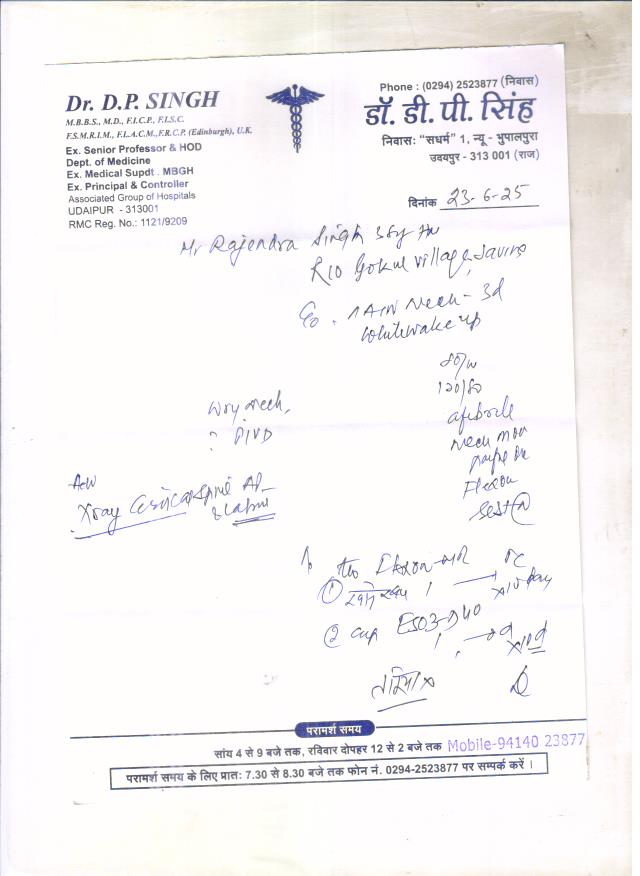 Dr. D.P. SINGH
M.B.B.S., M.D., F.I.C.P., F.I.S.C.
F.S.M.R.I.M., F.I.A.C.M., F.R.C.P. (Edinburgh), U.K.
Ex. Senior Professor & HOD
Dept. of Medicine
Ex. Medical Supdt. MBGH
Ex. Principal & Controller
Associated Group of Hospitals
UDAIPUR - 313001
RMC Reg. No.: 1121/9209
Phone : (0294) 2523877 (निवास)
डॉ. डी. पी. सिंह
निवास: "सधर्म" 1, न्यू - भुपालपुरा
उदयपुर - 313 001 (राज)
दिनांक 23-6-25
Mr Rajendra Singh 38y
R/o Gokul Village, Savina
C/o Neck - 3d
while wake up
80/m
120/80
afebrile
Neck
painful on
Flexion
Wry neck,
? PIVD
Adv
Xray Cervical Spine AP
& Lateral
① Tab
x10 day
② Cap ESO3-D 40
x10d
तकिया x
परामर्श समय
सांय 4 से 9 बजे तक, रविवार दोपहर 12 से 2 बजे तक Mobile-94140 23877
परामर्श समय के लिए प्रातः 7.30 से 8.30 बजे तक फोन नं. 0294-2523877 पर सम्पर्क करें ।